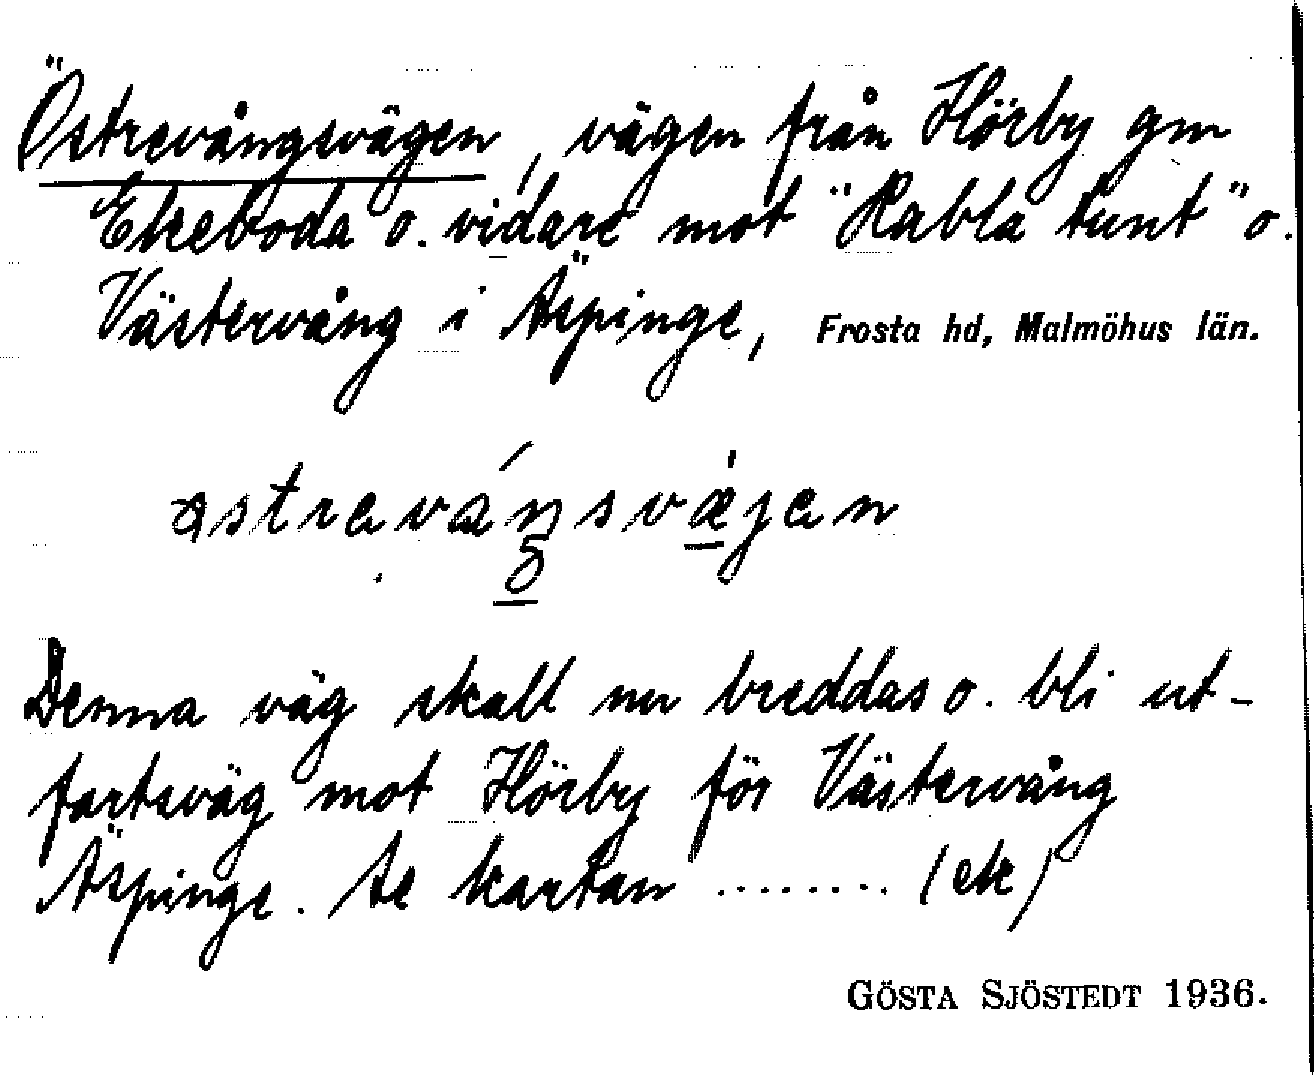 Östrevångsvägen, vägen från Hörby gm
Ekeboda o. vidare mot "Rabla tunt" o.
Västervång i Äspinge, Frosta hd, Malmöhus län.
Denna väg skall nu breddas o. bli ut-
fartsväg mot Hörby för Västervång
Äspinge. Se kartan ........ (ek)
GÖSTA SJÖSTEDT 1936.